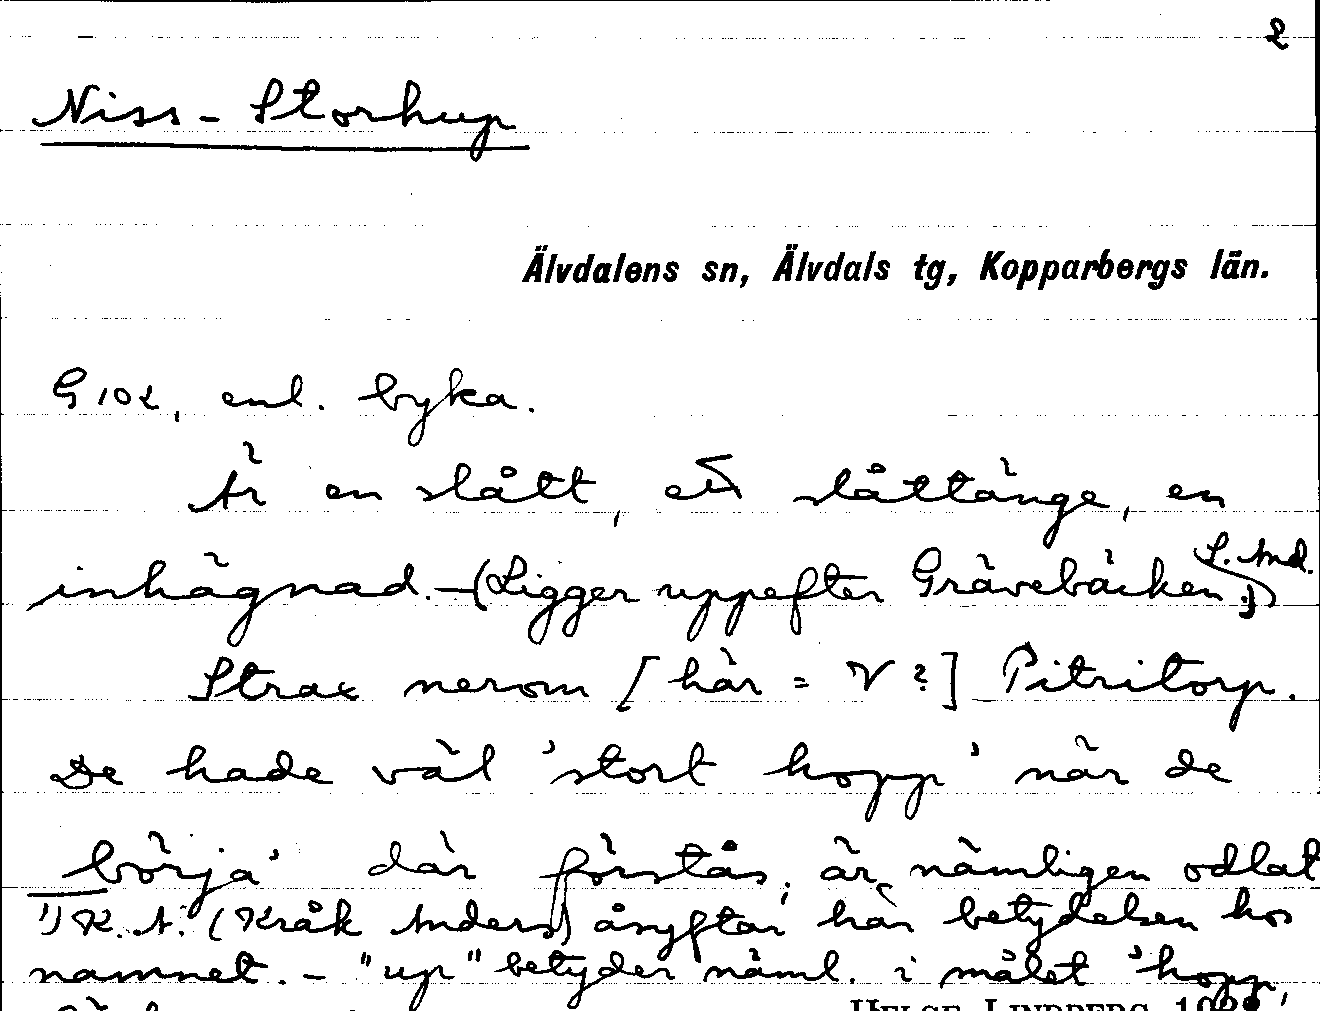 2
Niss-Storhup
Älvdalens sn, Älvdals tg, Kopparbergs län.
G 102, enl. byka.
Är en slått, ett slåttänge, en
inhägnad. – (Ligger uppefter Grävebäcken.) L. And.
Strax nerom [här = V?] Pitritorp.
De hade väl 'stort hopp' när de
börja' där förstås, är nämligen odlat
1) K. A. (Kråk Anders) åsyftar här betydelsen hos
namnet. – "up" betyder näml. i målet 'hopp,
HELGE LINDBERG